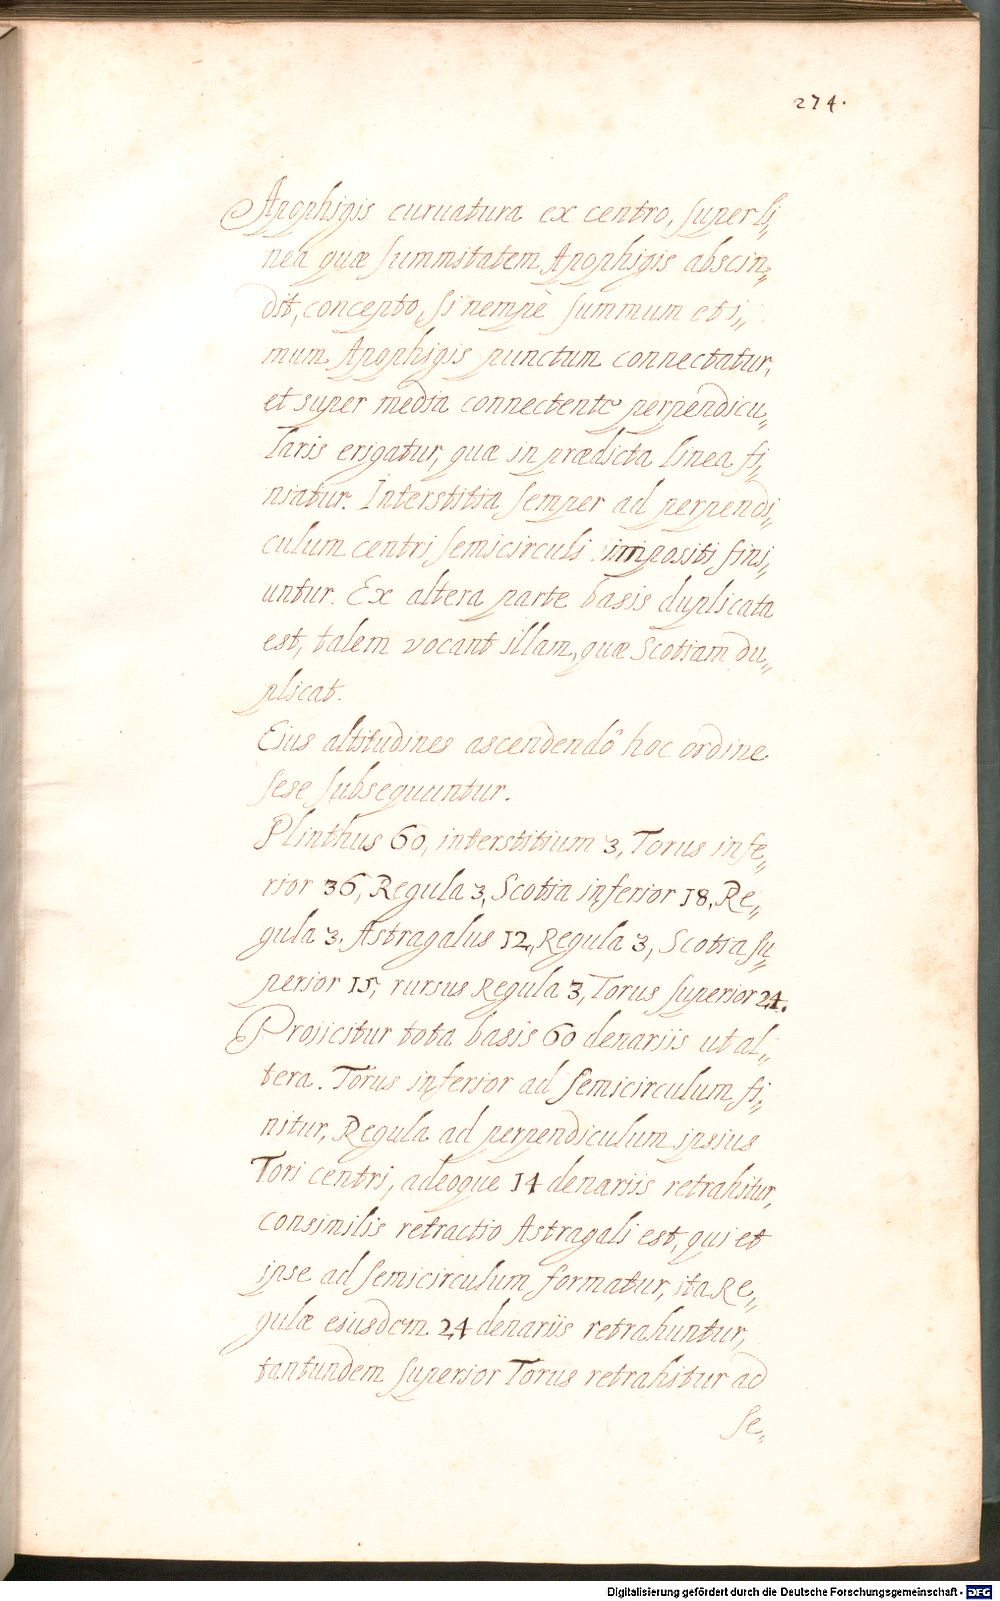 274.
Apophigis curuatura ex centro, super li„
nea quæ summitatem Apophigis abscin„
dit, concepto, si nempè summum et i„
mum Apophigis punctum connectatur,
et super media connectente perpendicu„
laris erigatur, quæ in prædicta linea fi„
niatur. Interstitia semper ad perpendi„
culum centri semicirculi impositi fini„
untur. Ex altera parte basis duplicata
est, talem vocant illam, quæ Scotiam du„
plicat.
Eius altitudines ascendendô hoc ordine
sese subsequuntur.
Plinthus 60, interstitium 3, Torus infe„
rior 36, Regula 3, Scotia inferior 18, Re„
gula 3. Astragalus 12, Regula 3, Scotia su„
perior 15, rursus Regula 3, Torus superior 24.
Projicitur tota basis 60 denariis ut al„
tera. Torus inferior ad semicirculum fi„
nitur, Regula ad perpendiculum ipsius
Tori centri, adeoque 14 denariis retrahitur,
consimilis retractio Astragali est, qui et
ipse ad semicirculum formatur, ita Re„
gulæ eiusdem 24 denariis retrahuntur,
tantundem superior Torus retrahitur ad
se„
Digitalisierung gefördert durch die Deutsche Forschungsgemeinschaft - DFG